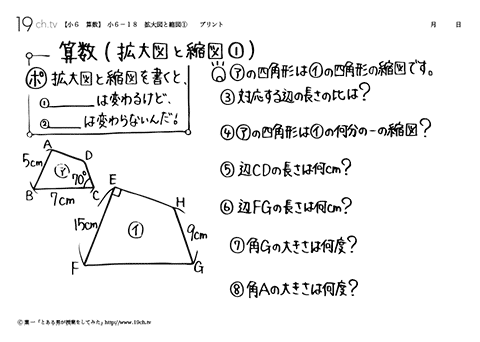 19ch.tv 【小6 算数】 小6-18 拡大図と縮図① プリント 月 日
算数(拡大図と縮図①)
ポ 拡大図と縮図を書くと、
①______は変わるけど、
②______は変わらないんだ!
㋐の四角形は㋑の四角形の縮図です。
③対応する辺の長さの比は?
④㋐の四角形は㋑の何分の一の縮図?
⑤辺CDの長さは何cm?
⑥辺FGの長さは何cm?
⑦角Gの大きさは何度?
⑧角Aの大きさは何度?
A
5cm
D
㋐
70°
B
7cm
C
E
H
15cm
㋑
9cm
F
G
ⓒ葉一「とある男が授業をしてみた」http://www.19ch.tv